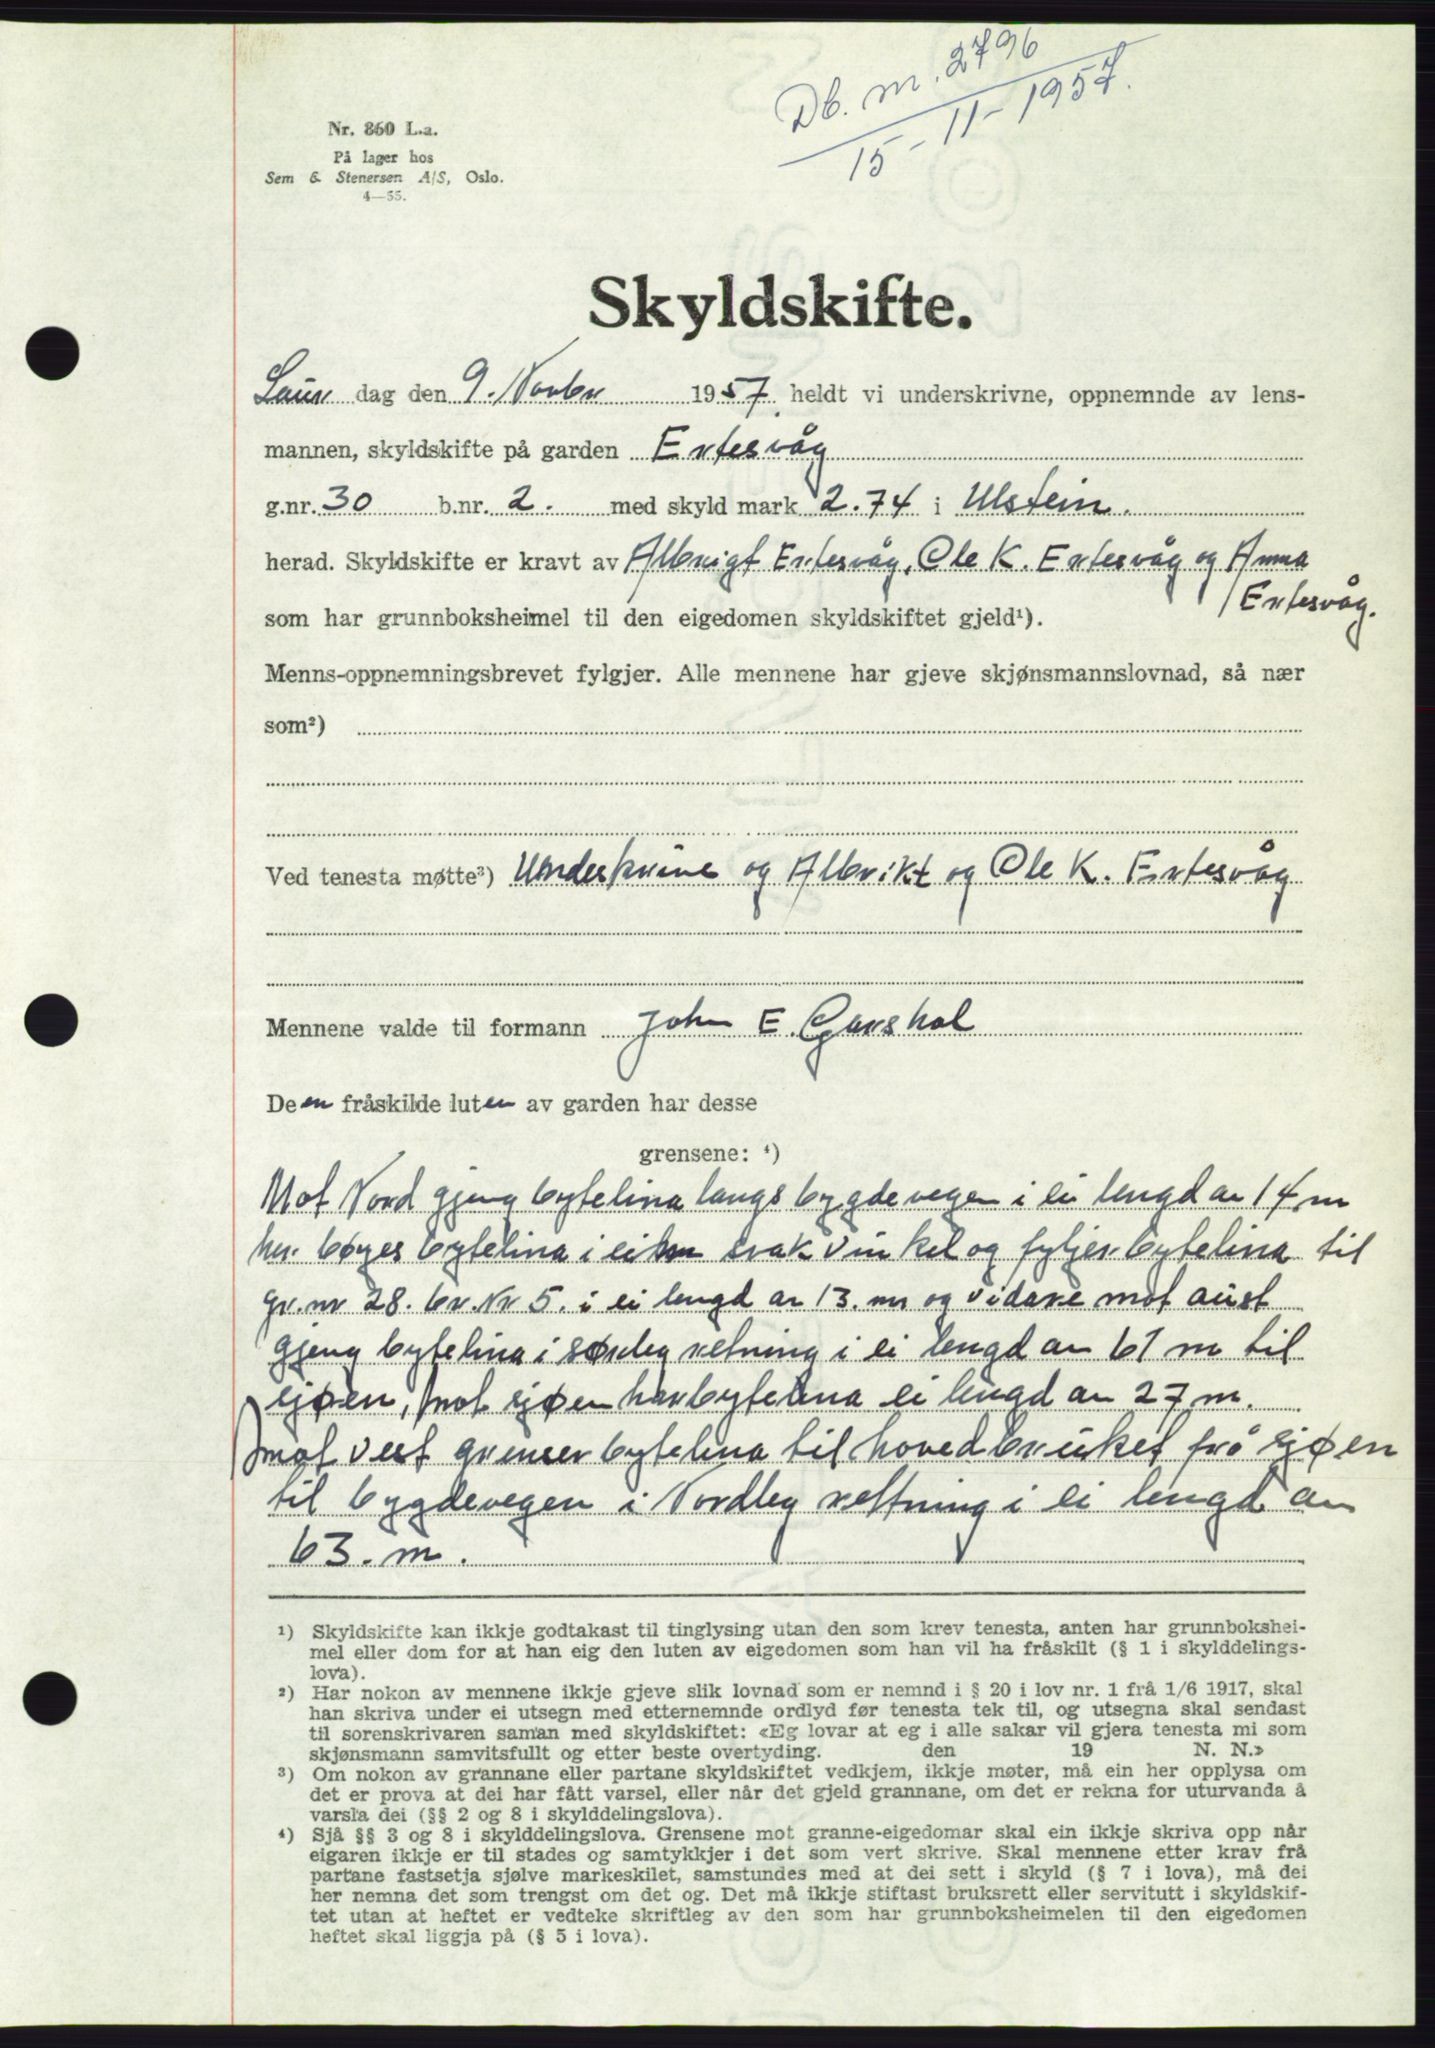 Db. nr. 2796
15-11-1957.
Nr. 860 L.a.
På lager hos
Sem & Stenersen A/S, Oslo.
4—55.
Skyldskifte.
Laur dag den 9. Novbr 1957 heldt vi underskrivne, oppnemnde av lens-
mannen, skyldskifte på garden Ertesvåg
g.nr. 30 b.nr. 2. med skyld mark 2.74 i Ulstein.
herad. Skyldskifte er kravt av Albrigt Ertesvåg, Ole K. Ertesvåg og Anna
Ertesvåg.
som har grunnboksheimel til den eigedomen skyldskiftet gjeld¹).
Menns-oppnemningsbrevet fylgjer. Alle mennene har gjeve skjønsmannslovnad, så nær
som²)
Ved tenesta møtte³) Underkrine og Albrikt og Ole K. Ertesvåg
Mennene valde til formann John E. Garshol
Deen fråskilde luten av garden har desse
grensene: ⁴)
Mot Nord gjeng bytelina langs bygdevegen i ei lengd av 14 m
her bøyes bytelina i ein svak vinkel og fyljer bytelina til
gr.nr 28. br.Nr 5. i ei lengd av 13. m og vidare mot aust
gjeng bytelina i sørleg retning i ei lengd av 61 m til
sjøen, mot sjøen har bytelina ei lengd av 27 m.
mot vest grenser bytelina til hovedbruket frå sjøen
til bygdevegen i Nordleg rettning i ei lengd av
63. m.
¹) Skyldskifte kan ikkje godtakast til tinglysing utan den som krev tenesta, anten har grunnbokshei-
mel eller dom for at han eig den luten av eigedomen som han vil ha fråskilt (§ 1 i skylddelings-
lova).
²) Har nokon av mennene ikkje gjeve slik lovnad som er nemnd i § 20 i lov nr. 1 frå 1/6 1917, skal
han skriva under ei utsegn med etternemnde ordlyd før tenesta tek til, og utsegna skal sendast
til sorenskrivaren saman med skyldskiftet: «Eg lovar at eg i alle sakar vil gjera tenesta mi som
skjønsmann samvitsfullt og etter beste overtyding. den 19 N. N.»
³) Om nokon av grannane eller partane skyldskiftet vedkjem, ikkje møter, må ein her opplysa om
det er prova at dei har fått varsel, eller når det gjeld grannane, om det er rekna for uturvanda å
varsla dei (§§ 2 og 8 i skylddelingslova).
⁴) Sjå §§ 3 og 8 i skylddelingslova. Grensene mot granne-eigedomar skal ein ikkje skriva opp når
eigaren ikkje er til stades og samtykkjer i det som vert skrive. Skal mennene etter krav frå
partane fastsetja sjølve markeskilet, samstundes med at dei sett i skyld (§ 7 i lova), må dei
her nemna det som trengst om det og. Det må ikkje stiftast bruksrett eller servitutt i skyldskif-
tet utan at heftet er vedteke skriftleg av den som har grunnboksheimelen til den eigedomen
heftet skal liggja på (§ 5 i lova).